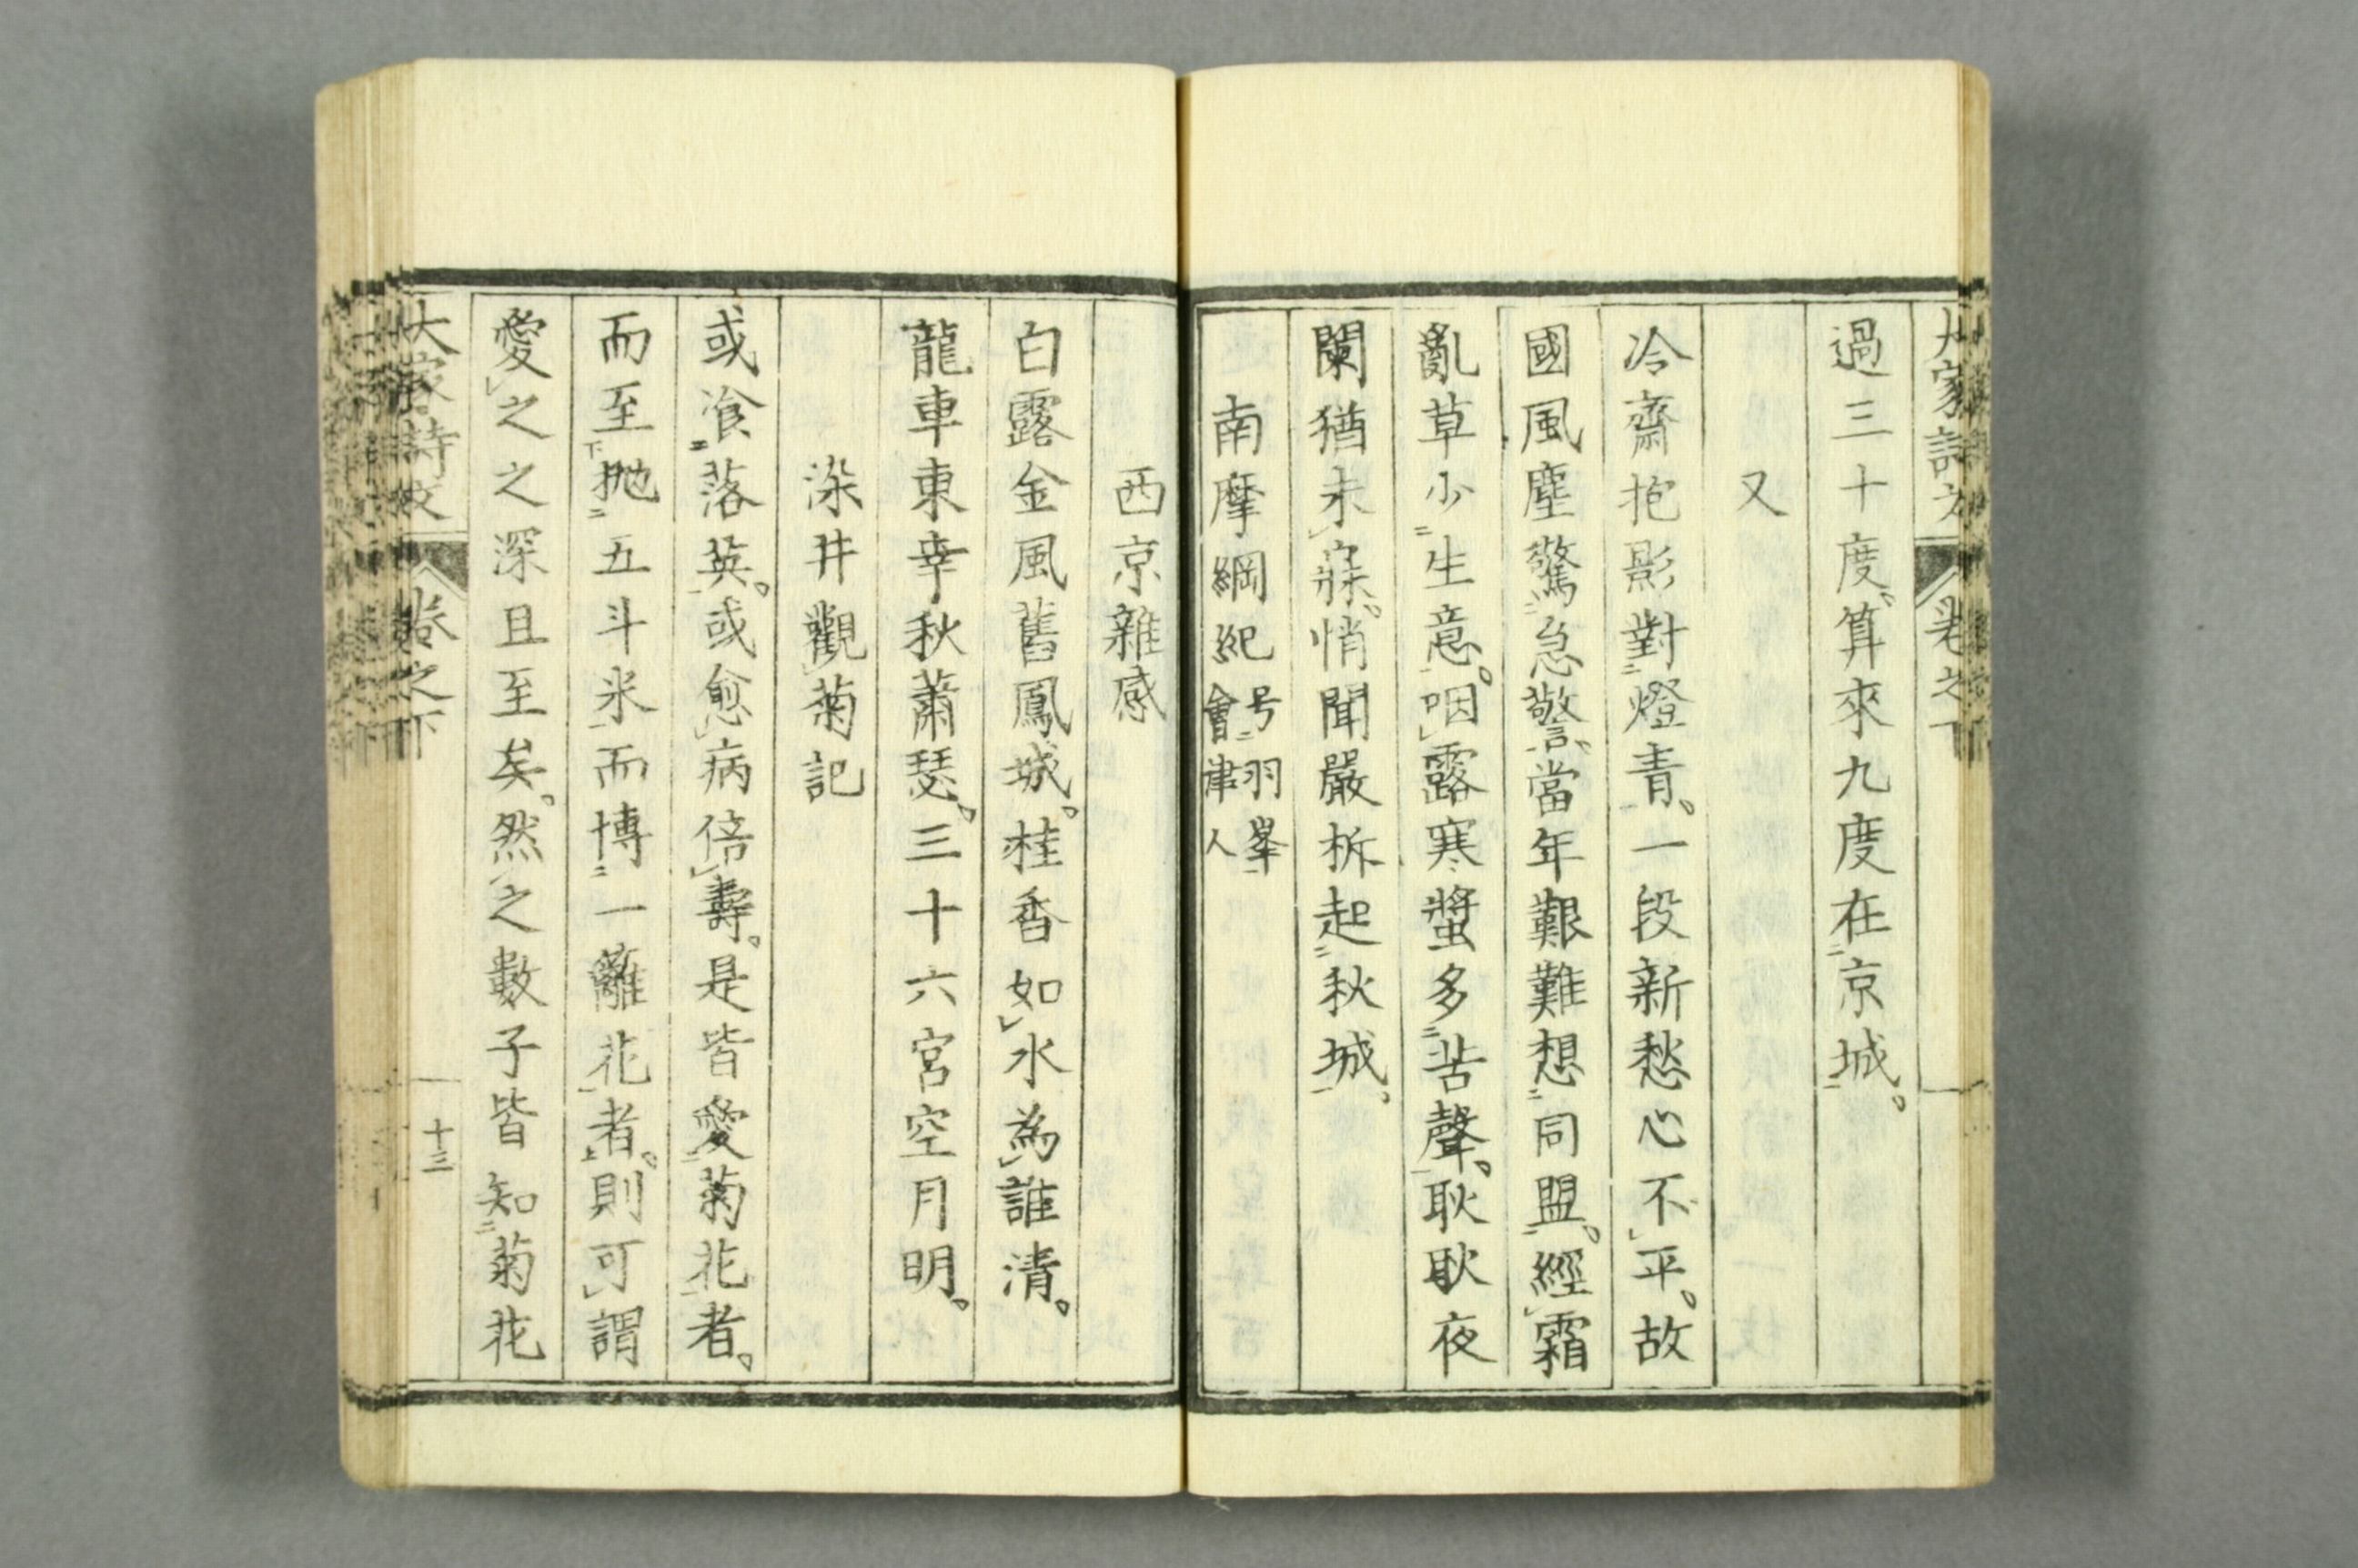 大家詩文 卷之下
過三十度。算來九度在二京城一。
又
冷齋抱影對二燈青一。一段新愁心不レ平。故
國風塵驚二急警一。當年艱難想二同盟一。經レ霜
亂草少二生意一。咽レ露寒螿多二苦聲一。耿耿夜
闌猶未レ寐。悄聞嚴柝起二秋城一。
南摩綱紀 号二羽峯一 會津人
西京雜感
白露金風舊鳳城。桂香如レ水為レ誰清。
龍車東幸秋蕭瑟。三十六宮空月明。
染井觀レ菊記
或飡二落英一。或愈レ病倍レ壽。是皆愛二菊花一者。
而至下抛二五斗米一而博二一籬花一者上。則可レ謂
愛レ之之深且至矣。然之數子皆知二菊花
大家詩文 卷之下 十三